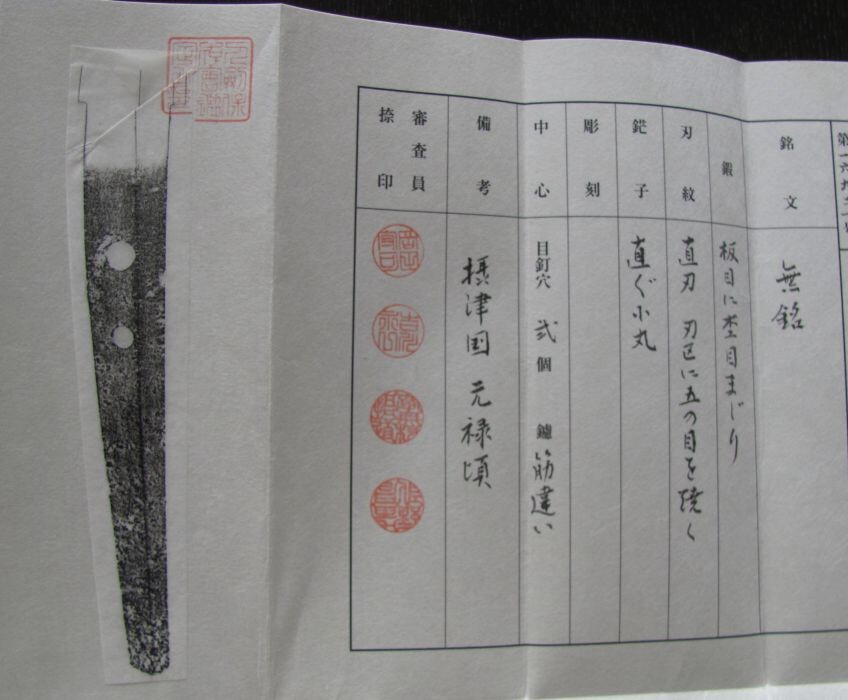 銘文
無銘
鍛
板目に杢目まじり
刃紋
直刃 刃区に五の目を焼く
鋩子
直ぐ小丸
彫刻
中心
目釘穴 弐個 鑢 筋違い
備考
摂津国 元禄頃
審査員
捺印